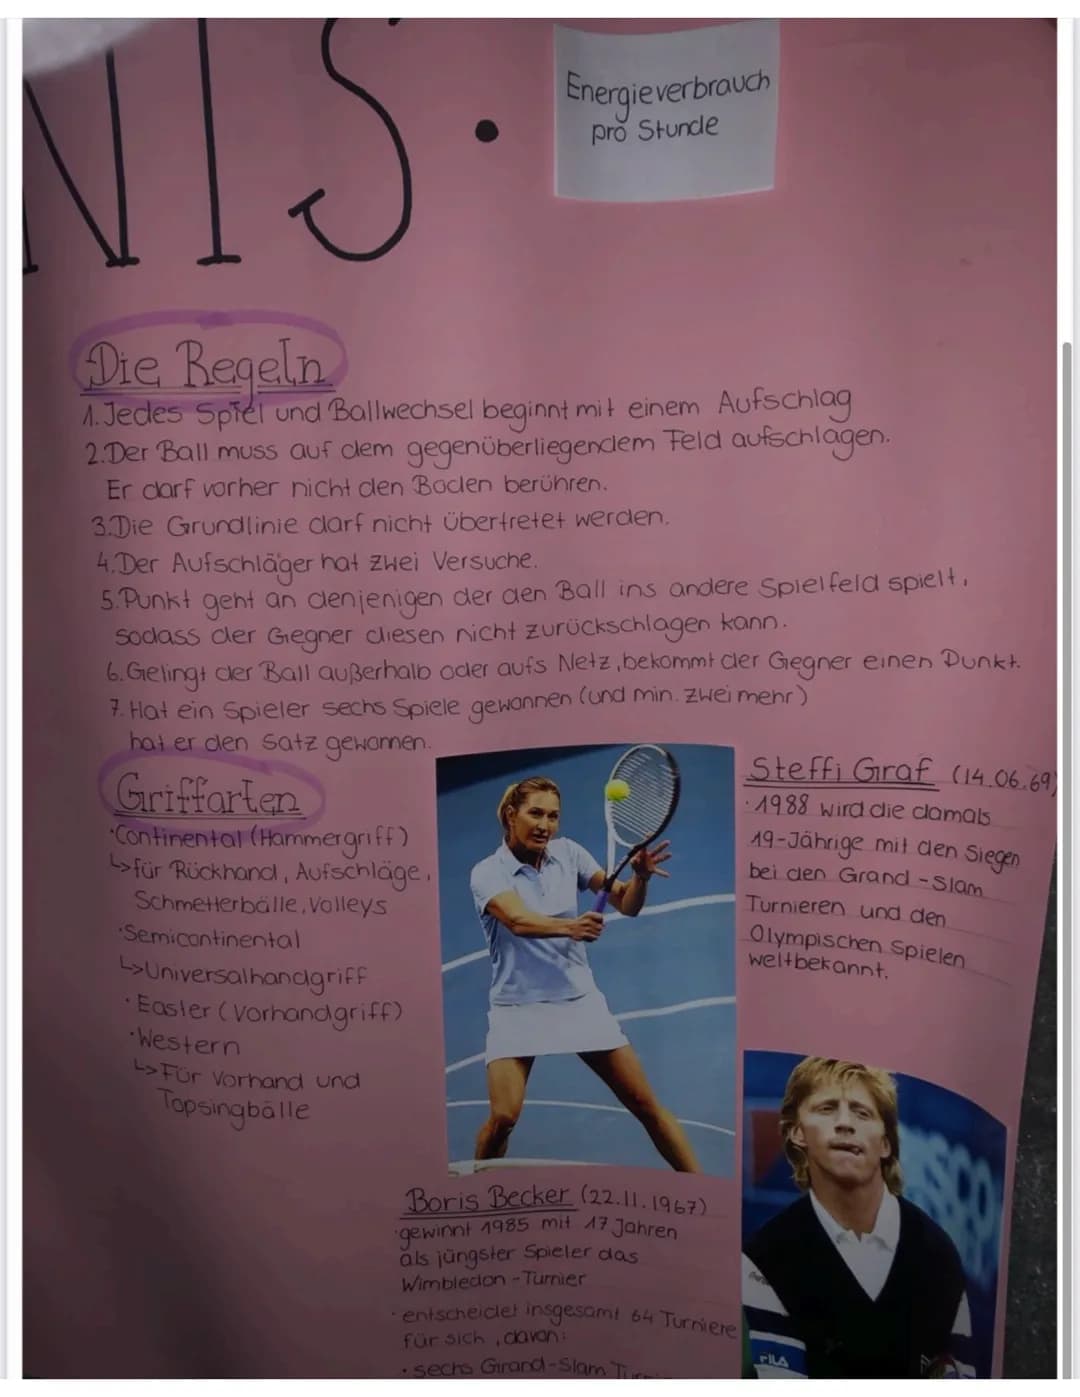 NIS.
Energieverbrauch
pro Stunde
Die Regeln
1. Jedes Spiel und Ballwechsel beginnt mit einem Aufschlag
2. Der Ball muss auf dem gegenüberliegendem Feld aufschlagen.
Er darf vorher nicht den Boden berühren.
3. Die Grundlinie darf nicht übertretet werden.
4. Der Aufschläger hat zwei Versuche.
5. Punkt geht an denjenigen der den Ball ins andere Spielfeld spielt,
sodass der Gegner diesen nicht zurückschlagen kann.
6. Gelingt der Ball außerhalb oder aufs Netz, bekommt der Gegner einen Punkt.
7. Hat ein Spieler sechs Spiele gewonnen (und min. zwei mehr)
hat er den Satz gewonnen.
Griffarten
·Continental (Hammergriff)
↳für Rückhand, Aufschläge,
Schmetterbälle, Volleys
·Semicontinental
↳Universalhandgriff
·Easter (Vorhandgriff)
·Western
↳Für Vorhand und
Topsingbälle
Steffi Graf (14.06.69)
·1988 wird die damals
19-Jährige mit den Siegen
bei den Grand-Slam
Turnieren und den
Olympischen Spielen
weltbekannt.
Boris Becker (22.11.1967)
·gewinnt 1985 mit 17 Jahren
als jüngster Spieler das
Wimbledon-Turnier
·entscheidet insgesamt 64 Turniere
für sich, davon:
·sechs Grand-Slam
FILA